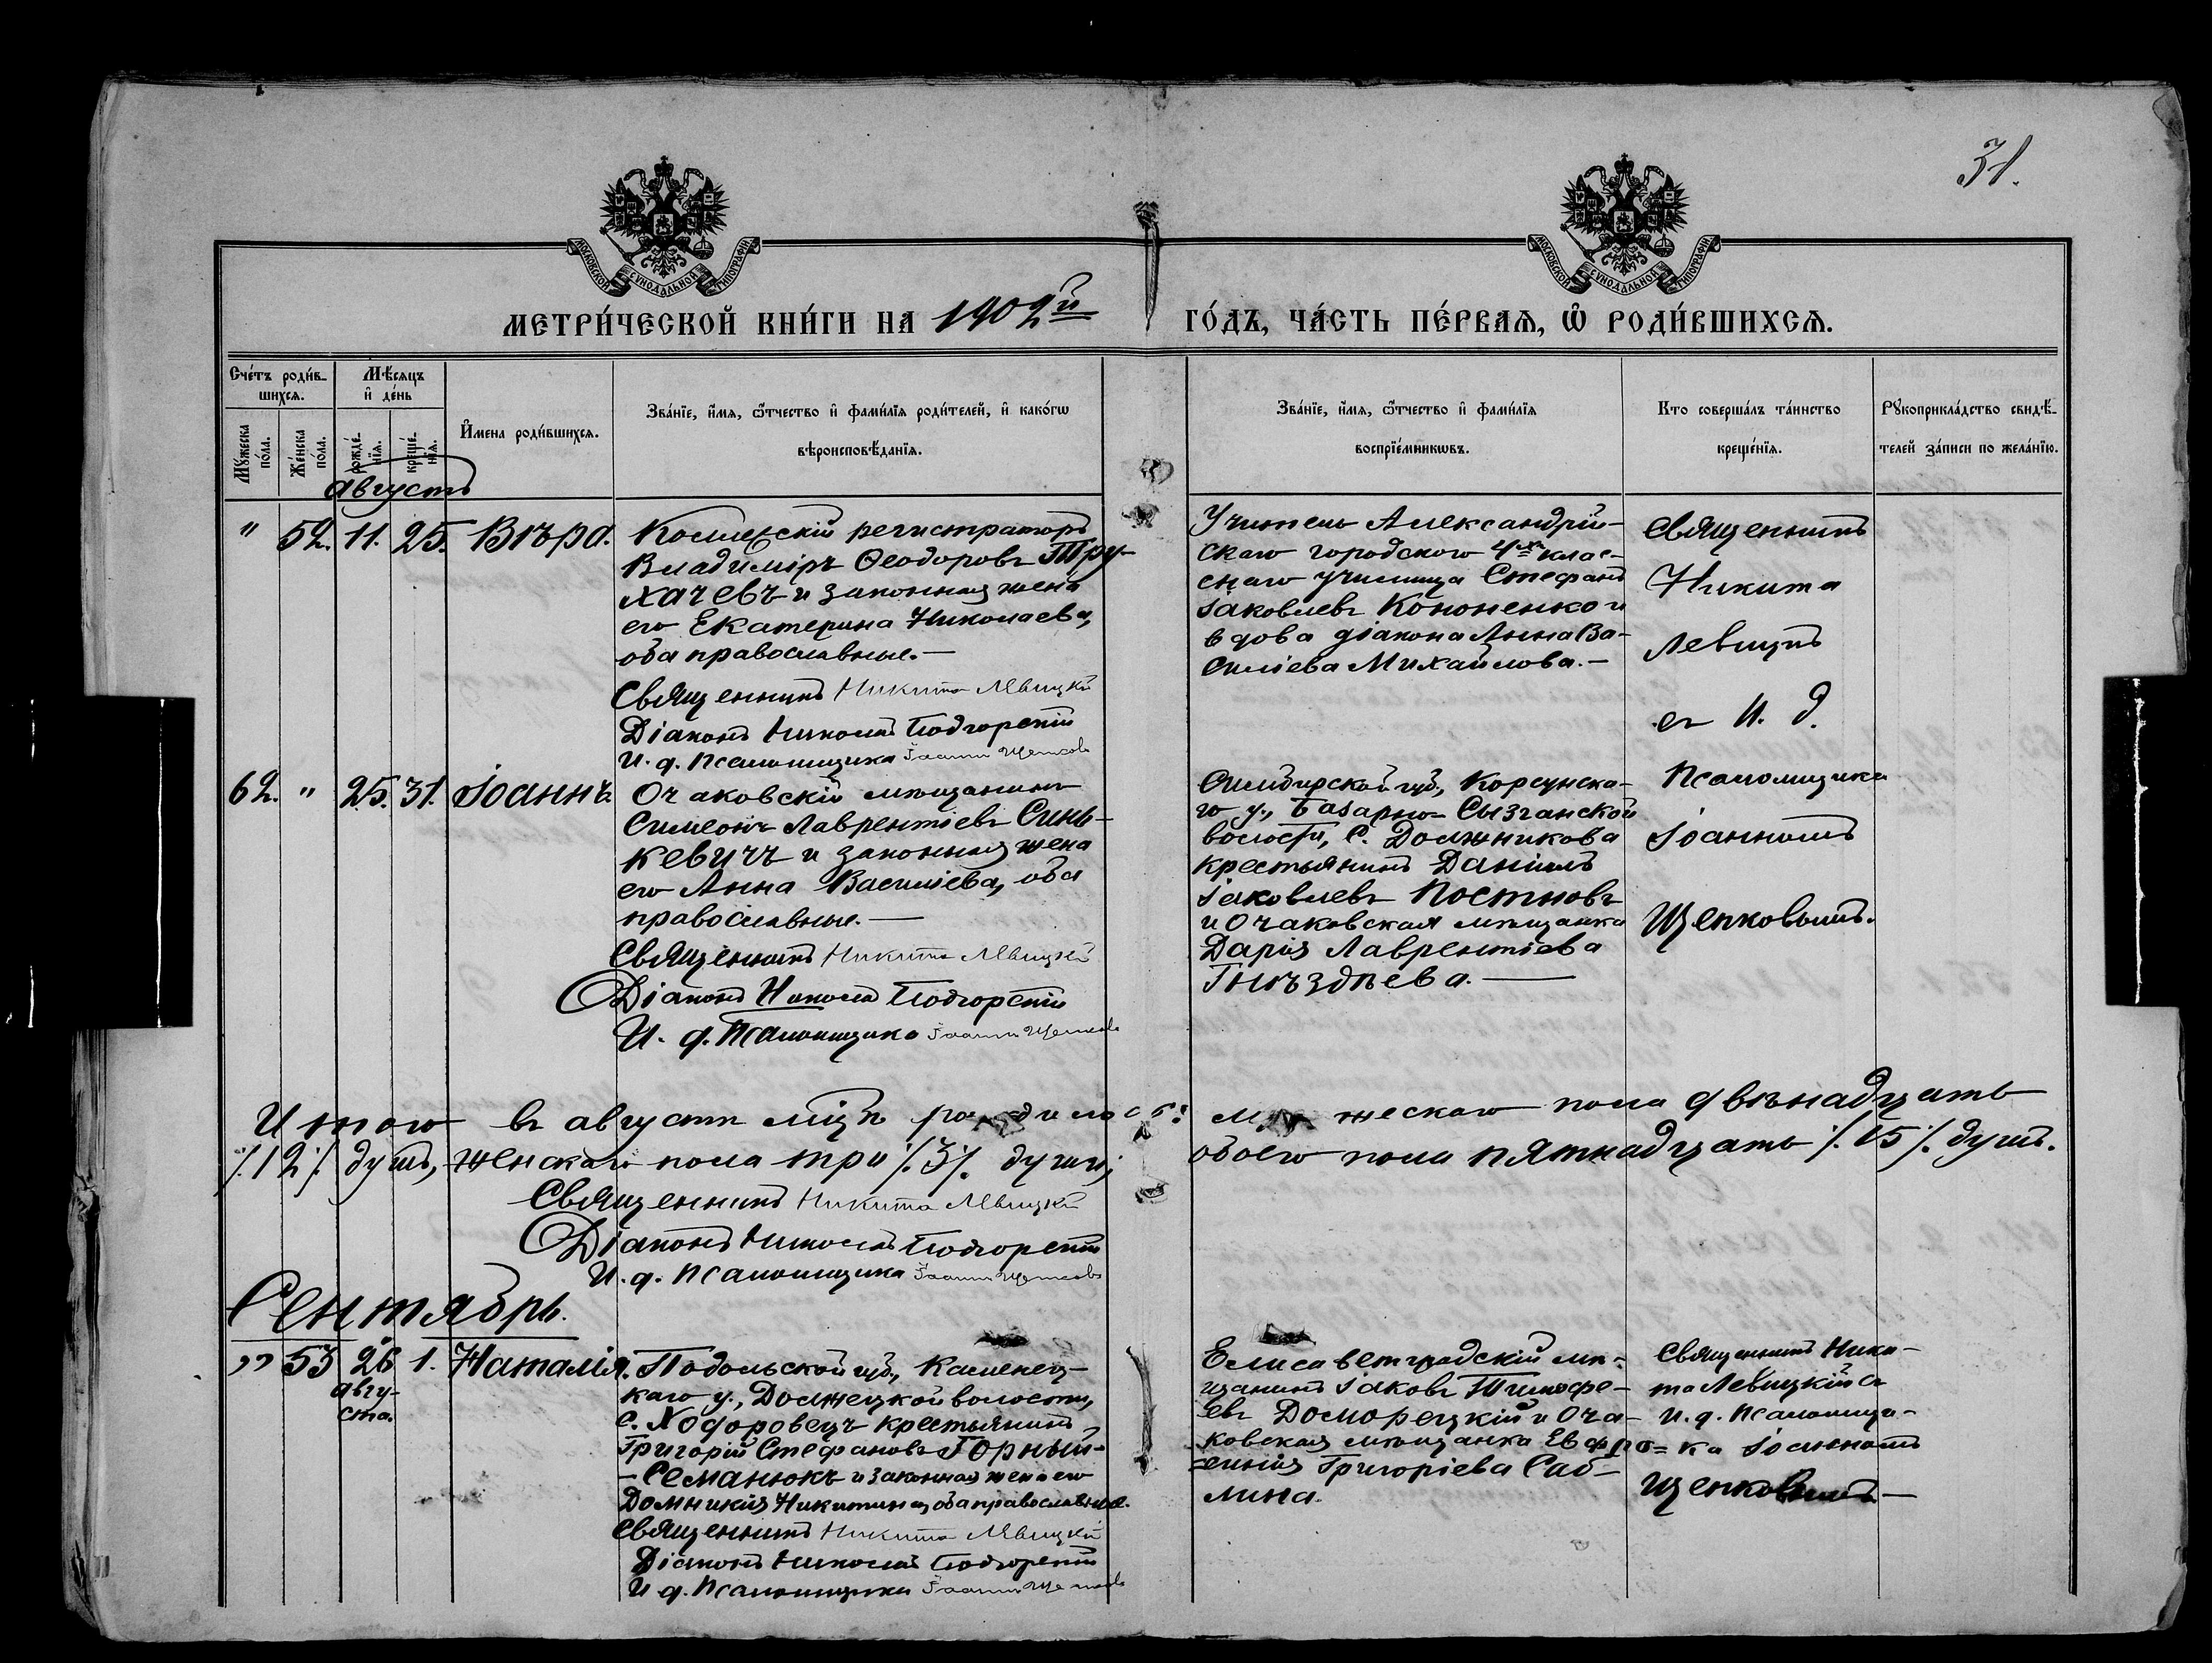 31.
МОСКОВСКОЙ СѴНОДАЛЬНОЙ ТИПОГРАФІИ
МОСКОВСКОЙ СѴНОДАЛЬНОЙ ТИПОГРАФІИ
МЕТРИ́ЧЕСКОЙ КНИ́ГИ НА 1902й ГО́ДЪ, ЧА́СТЬ ПЕ́РВАѦ, Ѡ҆ РОДИ́ВШИХСѦ.
Сче́тъ роди́в-
шихсѧ.
Мꙋ́жеска по́ла.
Же́нска по́ла.
Мѣ́сѧцъ
и҆ де́нь
рожде́-
нїѧ.
креще́-
нїѧ.
И҆мена роди́вшихсѧ.
Зва́нїе, и҆́мѧ, ѻ҆́тчество и҆ фами́лїѧ роди́телей, и҆ како́гѡ
вѣроисповѣ́данїѧ.
Зва́нїе, и҆́мѧ, ѻ҆́тчество и҆ фами́лїѧ
воспрїе́мникѡвъ.
Кто соверша́лъ та́инство
креще́нїѧ.
Рꙋкоприкла́дство свидѣ́-
телей за́писи по жела́нїю.
Августъ
" 52. 11. 25. Вѣра.
Коллежскій регистраторъ
Владиміръ Ѳеодоровъ Тру-
хачевъ и законная жена
его Екатерина Николаева,
оба православные.—
Священникъ Никита Левицкій
Діаконъ Николай Подгорскій
И. д. Псаломщика Іоаннъ Щепковъ
Учитель Александрій-
скаго городского 4-х клас-
снаго училища Стефанъ
Іаковлевъ Кононенко и
вдова діакона Анна Ва-
силіева Михайлова.—
Священникъ
Никита
Левицкій
съ И. д.
Псаломщика
Іоанномъ
Щепковымъ.
62. " 25. 31. Іоаннъ
Очаковскій мѣщанинъ
Симеонъ Лаврентіевъ Синь-
кевичъ и законная жена
его Анна Василіева, оба
православные.—
Священникъ Никита Левицкій
Діаконъ Николай Подгорскій
И. д. Псаломщика Іоаннъ Щепковъ
Симбирской губ., Корсунска-
го у., Базарно-Сызганской
волости, с. Должникова
крестьянинъ Даніилъ
Іаковлевъ Постновъ
и Очаковская мѣщанка
Дарія Лаврентіева
Гнѣздѣева.—
Итого въ августѣ мцѣ родилось: мужескаго пола двѣнадцать
./.12./. душъ, женскаго пола три ./.3./. души; обоего пола пятнадцать ./.15./. душъ.
Священникъ Никита Левицкій
Діаконъ Николай Подгорскій
И. д. Псаломщика Іоаннъ Щепковъ
Сентябрь.
" 53 26 1. Наталія.
авгу-
ста.
Подольской губ., Каменец-
каго у., Должецкой волости,
с. Ходоровецъ крестьянинъ
Григорій Стефановъ Горный-
-Семанюкъ и законная жена его
Домникія Никитина, оба православные.
Священникъ Никита Левицкій
Діаконъ Николай Подгорскій
И. д. Псаломщика Іоаннъ Щепковъ
Елисаветградскій мѣ-
щанинъ Іаковъ Тимофе-
евъ Доморецкій и Оча-
ковская мѣщанка Евфро-
=синія Григоріева Саб-
лина.
Священникъ Ники-
та Левицкій съ
и. д. Псаломщи-
ка Іоанномъ
Щепковымъ—